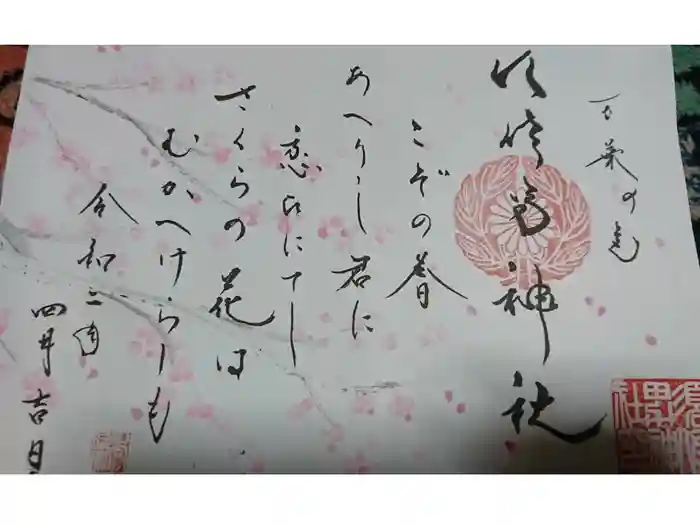 万葉の
神社
こぞの春
あへりし君に
恋ひにてし
さくらの花は
むかへけらしも
令和二年
四月吉日